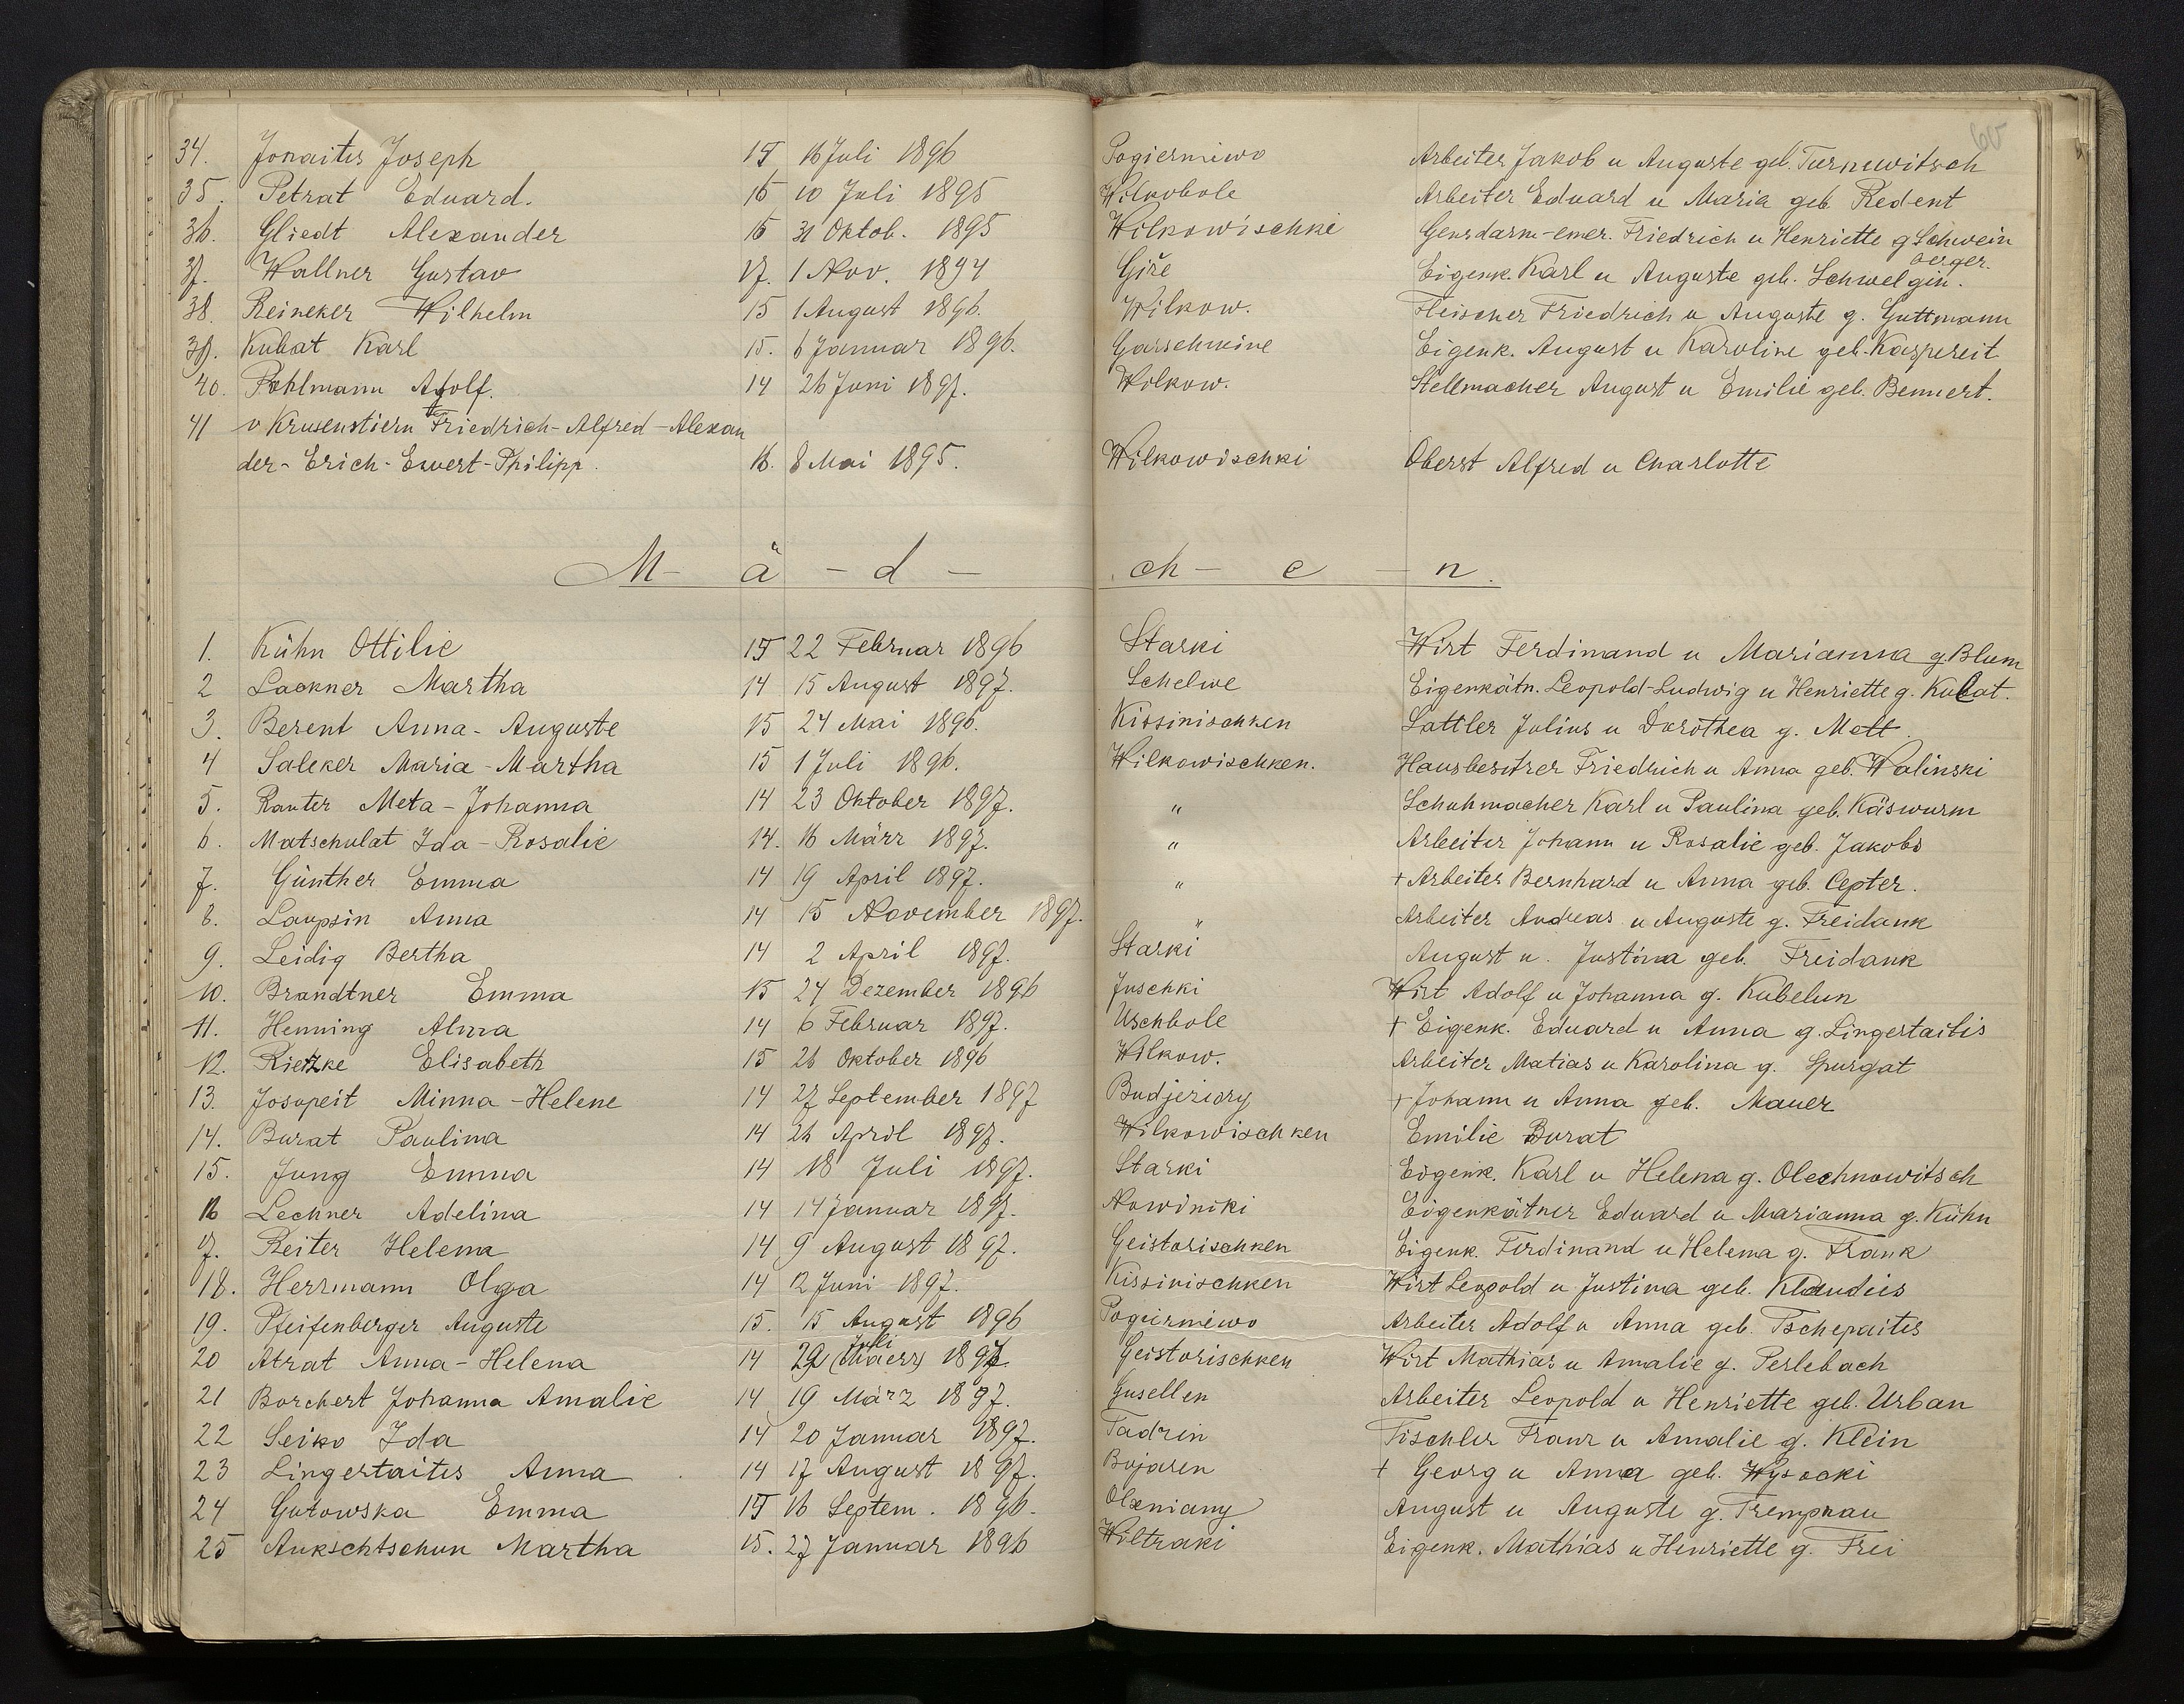 60
34. Jonaitis Joseph 15 16 Juli 1896 Pogiermiewo Arbeiter Jakob u Auguste geb. Turnuwitsch
35. Petrat Eduard. 16 10 Juli 1895 Wilkobole Arbeiter Eduard u Maria geb. Redent
36. Gliedt Alexander 16 31 Oktob. 1895 Wilkowischki Gensdarm-emer. Friedrich u Henriette g Schwein
berger.
37. Wallner Gustav 17. 1 Nov. 1894 Giže Eigenk. Karl u Auguste geb. Schwelgin.
38. Reineker Wilhelm 15 1 August 1896. Wilkow. Fleischer Friedrich u Auguste g. Guttmann
39. Kubat Karl 15. 6 Januar 1896. Garschwine Eigenk. August u Karoline geb. Kaspereit
40. Pohlmann Adolf. 14 26 Juni 1897. Wilkow. Stellmacher August u Emilie geb. Bennert.
41 v Krusenstiern Friedrich-Alfred-Alexan
der-Erich-Ewert-Philipp. 16. 8 Mai 1895. Wilkowischki Oberst Alfred u Charlotte
M-ä-d-ch-e-n.
1. Kühn Ottilie 15 22 Februar 1896 Starki Wirt Ferdinand u Marianna g. Blum
2 Lackner Martha 14 15 August 1897. Schelwe Eigenkätn. Leopold-Ludwig u Henriette g. Kubat.
3. Berent Anna-Auguste 15 24 Mai 1896. Kissinischken Sattler Julius u Dorothea g. Mett.
4 Saleker Maria-Martha 15 1 Juli 1896. Wilkowischken. Hausbesitzer Friedrich u Anna geb. Walinski
5. Rauter Meta-Johanna 14 23 Oktober 1897. " Schuhmacher Karl u Paulina geb. Käswurm
6. Matschulat Ida-Rosalie 14. 16 März 1897. " Arbeiter Johann u Rosalie geb. Jakobs
7. Günther Emma 14 19 April 1897. " + Arbeiter Bernhard u Anna geb. Cepter.
8. Laupsin Anna 14 15 November 1897. " Arbeiter Andreas u Auguste g. Freidank
9. Leidig Bertha 14 2 April 1897. Starki August u. Justina geb. Freidank
10. Brandtner Emma 15 24 Dezember 1896 Juschki Wirt Adolf u Johanna g. Kubelun
11. Henning Alma 14 6 Februar 1897. Uschbole + Eigenk. Eduard u Anna g. Lingertaitis
12. Rietzke Elisabeth 15 26 Oktober 1896 Wilkow. Arbeiter Matias u Karolina g. Spurgat
13. Josupeit Minna-Helene 14 27 September 1897 Budjeziory + Johann u Anna geb. Mauer
14. Burat Paulina 14 26 April 1897. Wilkowischken Emilie Burat
15. Jung Emma 14 18 Juli 1897. Starki Eigenk. Karl u Helena g. Olechnowitsch
16 Lechner Adelina 14 14 Januar 1897. Nowiniki Eigenkätner Eduard u Marianna g. Kühn
17. Reiter Helena 14 9 August 1897. Geistarischken Eigenk. Ferdinand u Helena g. Frank
18. Herrmann Olga 14 12 Juni 1897. Kissinischken Wirt Leopold u Justina geb. Klaudies
19. Pfeifenberger Auguste 15. 15 August 1896 Pogiermiewo Arbeiter Adolf u Anna geb. Tschepaites
Juli
20 Atrat Anna-Helena 14 29 (Maerz) 1897. Geistorischken Wirt Mathias u Amalie g. Perlebach
21 Borchert Johanna Amalie 14 19 März 1897. Gusellen Arbeiter Leopold u Henriette geb. Urban
22 Seiko Ida 14 20 Januar 1897. Tadrin Tischler Franz u Amalie g. Klein
23 Lingertaites Anna 14 17 August 1897. Bojaren + Georg u Anna geb. Wysocki
24 Gutowska Emma 15 16 Septem. 1896. Olxniany August u Auguste g. Trempnau
25 Aukschtschun Martha 15. 27 Januar 1896 Wiltraki Eigenk. Mathias u Henriette g. Frei